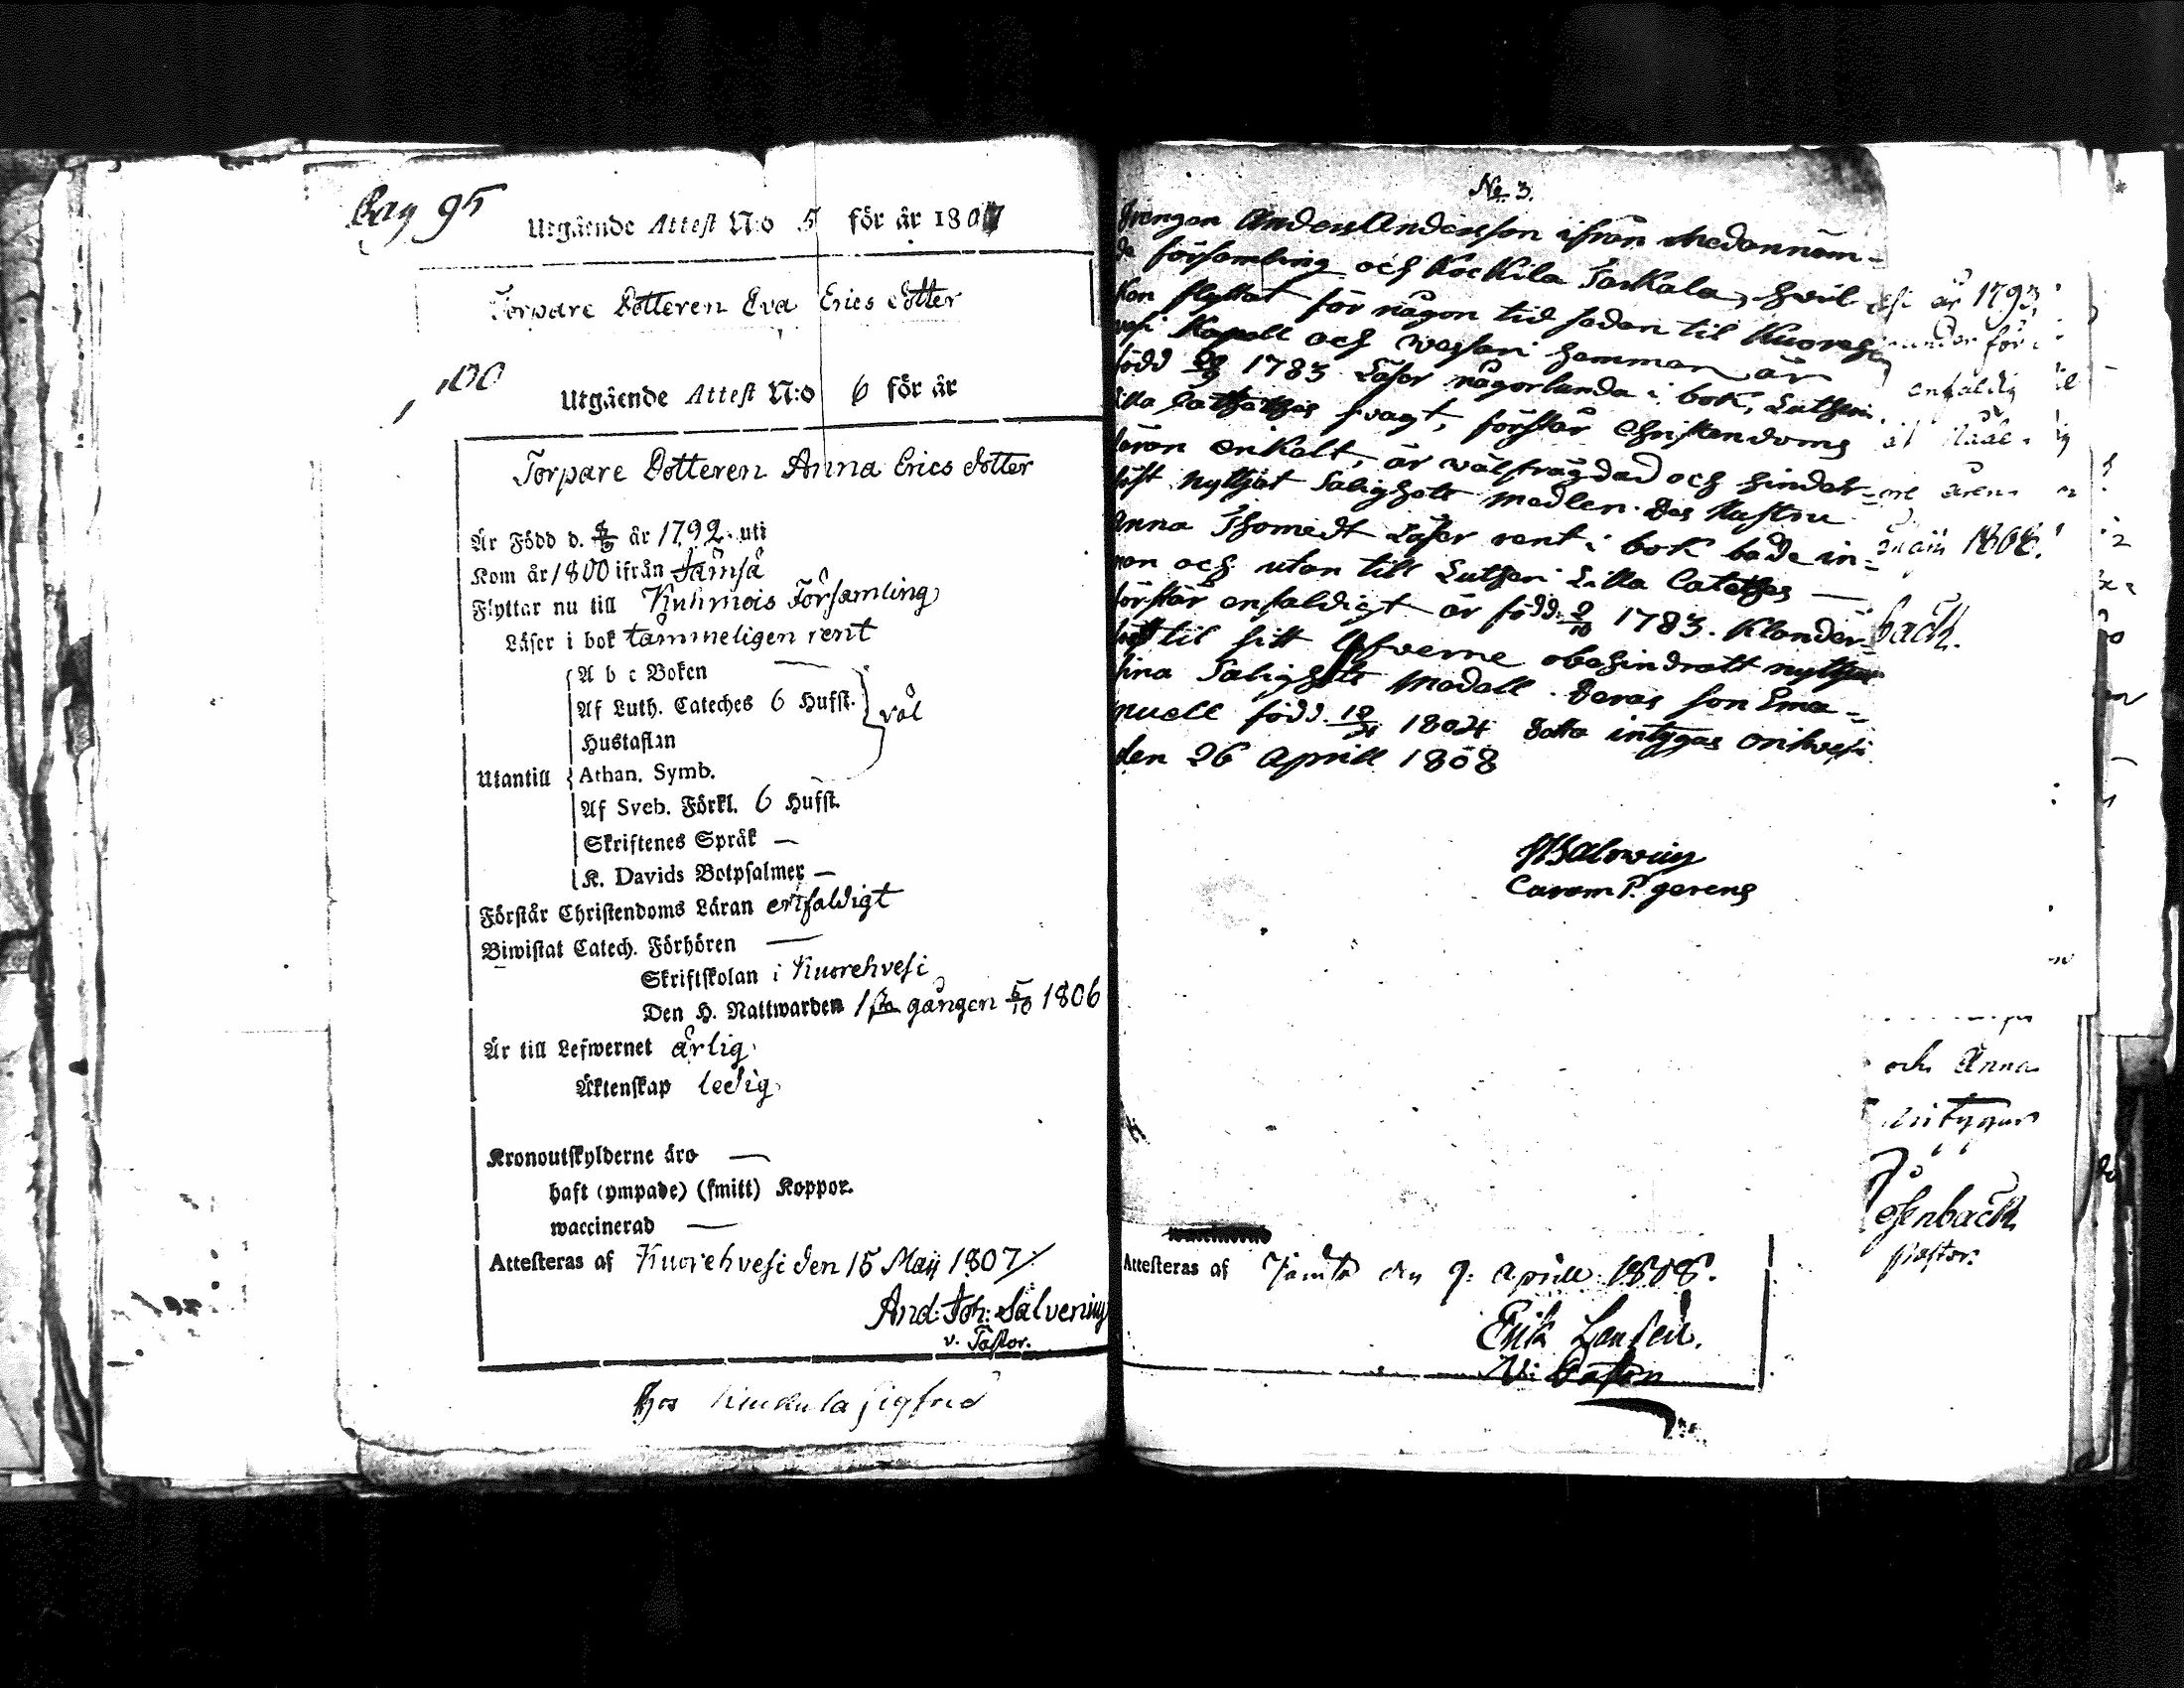 Pag 95
Utgående Attest N:o 5 för år 1807
Torpare Dotteren Eva Erics dotter
100
Utgående Attest N:o 6 för år
Torpare Dotteren Anna Erics dotter
Är Född d. år 1792. uti
Kom år 1800 ifrån Jämsä
Flyttar nu till Kuhmois Församling
Läser i bok tämmeligen rent
A b c Boken —
Af Luth. Cateches 6 Hufst.
väl
Hustaflan
Utantill Athan. Symb.
Af Sveb. Förkl. 6 Hufst.
Skriftenes Språk —
K. Davids Botpsalmer —
Förstår Christendoms Läran enfaldigt
Biwistat Catech. Förhören —
Skriftskolan i Kuorehvesi
Den H. Nattwarden 1sta gången 5/10 1806
Är till Lefwernet ärlig
Äktenskap ledig
Kronoutskylderne äro —
haft (ympade) (smitt) Koppor.
waccinerad —
Attesteras af Kuorehvesi den 15 Maij 1807
And: Joh: Salvenius
v. Pastor.
hos sigfrid
No. 3.
Drengen Anders Andersson ifrån Nedannäm-
de församling och Kockila Taskala, hvil
ken flyttat för någon tid sedan til Kuorehve
vesi Kapell och hemman är
född 1783 Läser någorlunda i bok, Lutheri
Lilla svagt, förstår Christendoms
läran enkelt, är wälfrägdad och hinder-
löst Nyttjat Salighets medlen. Des Hustru
Anna Thomedt Läser rent i bok både in-
nan och utan till Lutheri Lilla Cateches —
förstår enfaldigt är född 9/10 1783. Klander-
löst til sitt Lefverne obehindratt nyttjat
sina Salighets Medell. Deras son Ema-
nuell född 1804 Detta intygas Orihvesi
den 26 Aprill 1808
Curam P. gerens
år 1793
enfaldig
1808.
bäck.
och Anna
intygar
Pastor.
Attesteras af Jämsä den 9: Aprill 1808.
Erik
Vi: Pastor